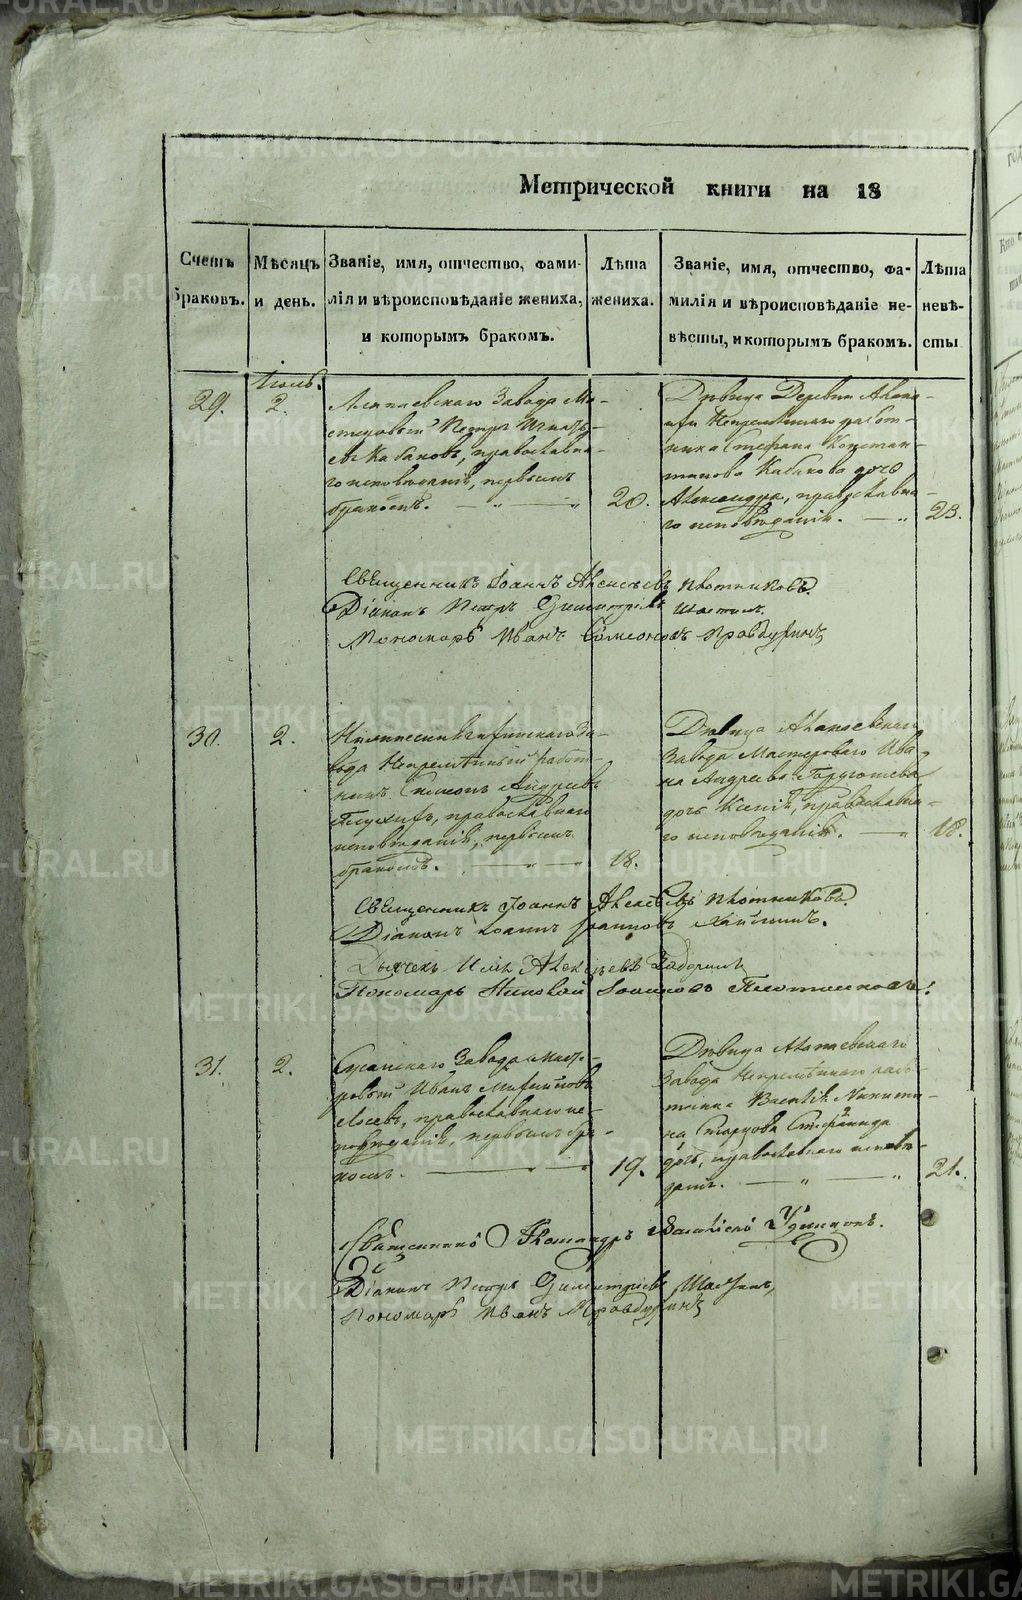 Метрической книги на 18
Счетъ браковъ.
Мѣсяцъ и день.
Званіе, имя, отчество, фами-
лія и вѣроисповѣданіе жениха,
и которымъ бракомъ.
Лѣта
жениха.
Званіе, имя, отчество, фа-
милія и вѣроисповѣданіе не-
вѣсты, и которымъ бракомъ.
Лѣта
невѣ-
сты
Іюль.
29.
2.
Алапаевскаго Завода Ма-
стеровый Петръ Игнать-
евъ Кабаковъ, православна-
го исповѣданія, первымъ
бракомъ.
20.
Дѣвица Деревни
Непремѣннаго работ-
ника Стефана Констан-
тинова Кабакова дочь
Александра, православна-
го исповѣданія.
23.
Священникъ Іоаннъ Алексѣевъ Плотниковъ.
Діаконъ Петръ Димитріевъ
Пономарь Иванъ Симеоновъ Правдуринъ
30.
2.
за-
вода Непремѣнный работ-
никъ Симеонъ Андреевъ
православнаго
исповѣданія, первымъ
бракомъ.
18.
Дѣвица Алапаевскаго
Завода Мастероваго Ива-
на Андреева
дочь Ксенія, православна-
го исповѣданія.
18.
Священникъ Іоаннъ Алексѣевъ Плотниковъ.
Діаконъ Іоаннъ Іоанновъ
Дьячекъ Илья Алексѣевъ
Пономарь Николай Іоанновъ Плотниковъ.
31.
2.
Сусанскаго Завода масте-
ровый Иванъ
Лосевъ, православнаго ис-
повѣданія, первымъ бра-
комъ.
19.
Дѣвица Алапаевскаго
Завода Непремѣннаго рабо-
тника Василія Никити-
на Старцова Стефанида
дочь, православнаго исповѣ-
данія.
21.
Священникъ Александръ Васильевъ Удинцовъ.
Діаконъ Петръ Димитріевъ
Пономарь Иванъ Правдуринъ
METRIKI.GASO-URAL.RU